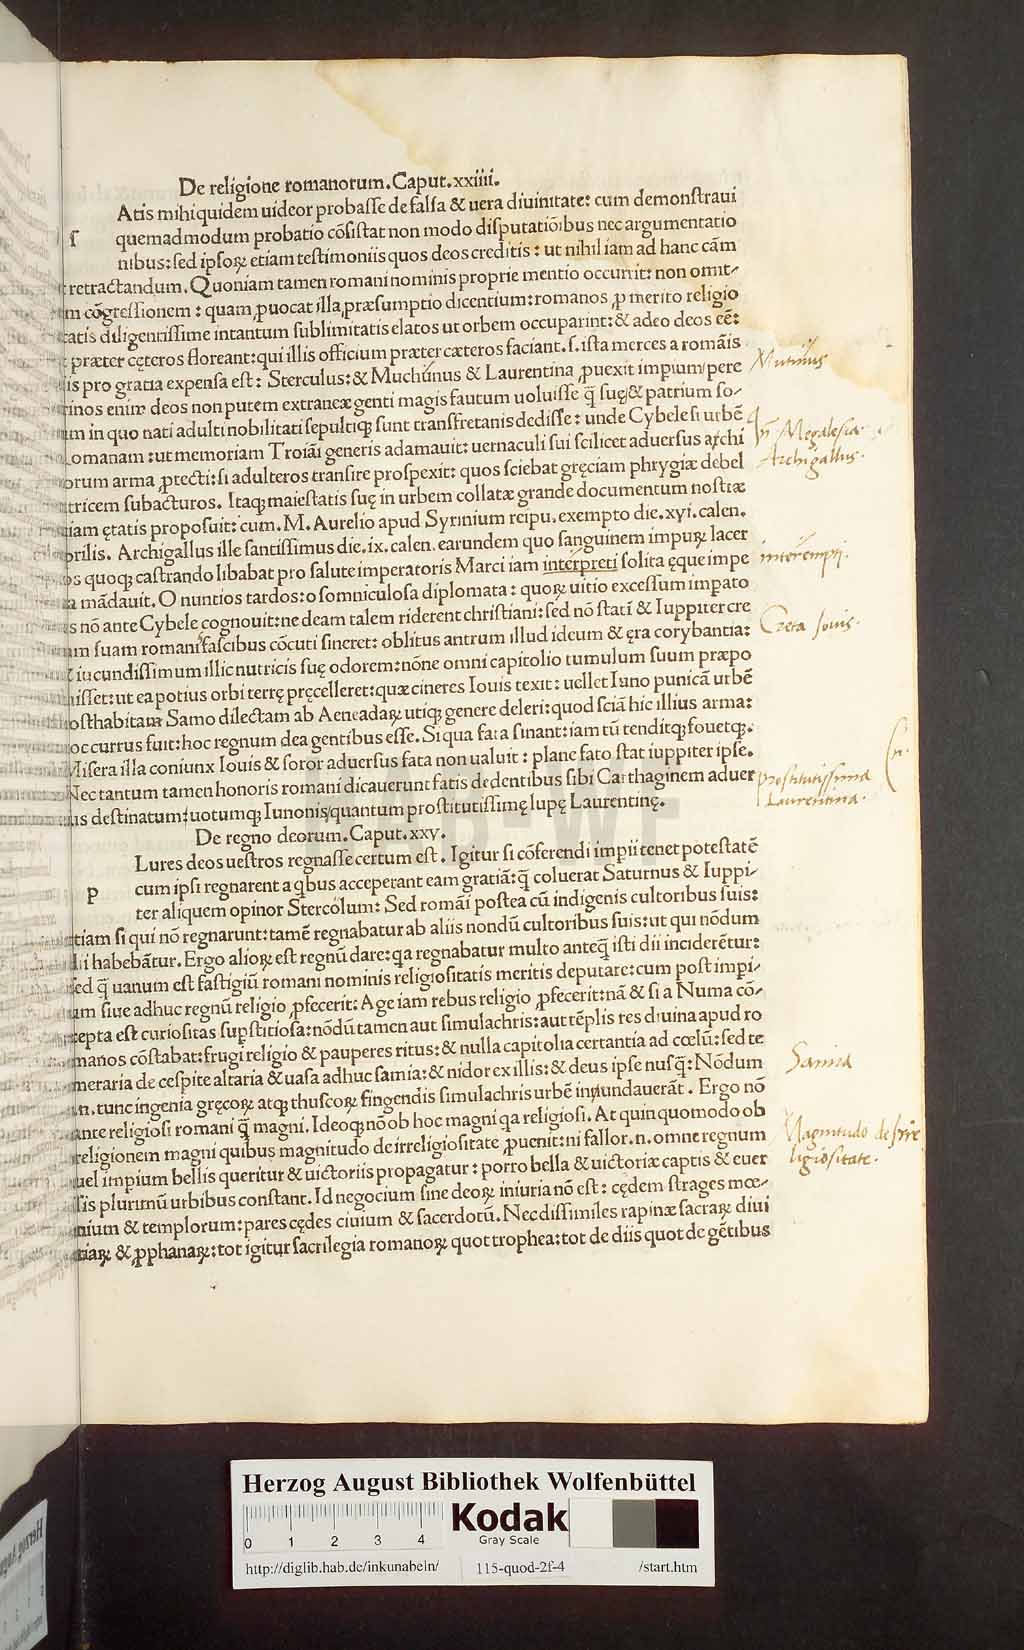 De religione romanorum. Caput. xxiiii.
Atis mihi quidem uideor probasse de falsa & uera diuinitate: cum demonstraui
quemadmodum probatio cõsistat non modo disputatiõibus nec argumentatio
nibus: sed ipsoꝝ etiam testimoniis quos deos creditis: ut nihil iam ad hanc cãm
retractandum. Quoniam tamen romani nominis proprie mentio occurrit: non omit-
m cõgressionem: quam ꝓuocat illa præsumptio dicentium: romanos ꝓ merito religio
tatis diligentissime intantum sublimitatis elatos ut orbem occuparint: & adeo deos eē:
præter cęteros floreant: qui illis officium præter cæteros faciant. s. ista merces a romãis
is pro gratia expensa est: Sterculus: & Muchũnus & Laurentina ꝓuexit impium/pere
rinos enim deos non putem extraneæ genti magis fautum uoluisse q̄ suę/& patrium so-
um in quo nati adulti nobilitati sepultiqꝫ sunt transfretanis dedisse: unde Cybele si urbē
omanam: ut memoriam Troiãi generis adamauit: uernaculi sui scilicet aduersus archi
orum arma ꝓtecti: si adulteros transire prospexit: quos sciebat gręciam phrygiæ debel
tricem subacturos. Itaqꝫ maiestatis suę in urbem collatæ grande documentum nostræ
iam ętatis proposuit: cum. M. Aurelio apud Syrmium reipu. exempto die. xyi. calen.
prilis. Archigallus ille santissimus die. ix. calen. earundem quo sanguinem impuꝝ lacer
os quoqꝫ castrando libabat pro salute imperatoris Marci iam interpreti solita ęque impe
a mãdauit. O nuntios tardos: o somniculosa diplomata: quoꝝ uitio excessum impato
s nõ ante Cybele cognouit: ne deam talem riderent christiani: sed nõ statĩ & Iuppiter cre
m suam romani fascibus cõcuti sineret: oblitus antrum illud ideum & ęra corybantia:
iucundissimum illic nutricis suę odorem: nõne omni capitolio tumulum suum præpo
isset: ut ea potius orbi terrę pręcelleret: quæ cineres Iouis texit: uellet Iuno punicã urbē
osthabitam Samo dilectam ab Aeneadaꝝ utiqꝫ genere deleri: quod sciã hic illius arma:
oc currus fuit: hoc regnum dea gentibus esse. Si qua fata sinant: iam tũ tenditqꝫ fouetqꝫ.
Misera illa coniunx Iouis & soror aduersus fata non ualuit: plane fato stat iuppiter ipse.
Nec tantum tamen honoris romani dicauerunt fatis dedentibus sibi Carthaginem aduer
us destinatum/uotumqꝫ Iunonis/quantum prostitutissimę lupę Laurentinę.
De regno deorum. Caput. xxv.
Lures deos uestros regnasse certum est. Igitur si cõferendi impii tenet potestatē
cum ipsi regnarent a qbus acceperant eam gratiã: q̄ coluerat Saturnus & Iuppi-
ter aliquem opinor Stercolum: Sed romãi postea cũ indigenis cultoribus suis:
tiam si qui nõ regnarunt: tamē regnabatur ab aliis nondũ cultoribus suis: ut qui nõdum
ii habebãtur. Ergo alioꝝ est regnũ dare: qa regnabatur multo anteq̄ isti dii inciderētur:
ed q̄ uanum est fastigiũ romani nominis religiositatis meritis deputare: cum post impi-
um siue adhuc regnũ religio ꝓfecerit: Age iam rebus religio ꝓfecerit: nã & si a Numa cõ-
cepta est curiositas supstitiosa: nõdũ tamen aut simulachris: aut tēplis res diuina apud ro
manos cõstabat: frugi religio & pauperes ritus: & nulla capitolia certantia ad cœlũ: sed te
meraria de cespite altaria & uasa adhuc samia: & nidor ex illis: & deus ipse nusq̄: Nõdum
n. tunc ingenia gręcoꝝ atqꝫ thuscoꝝ fingendis simulachris urbē inundauerãt. Ergo nõ
ante religiosi romani q̄ magni. Ideoqꝫ nõ ob hoc magni qa religiosi. At quin quomodo ob
religionem magni quibus magnitudo de irreligiositate ꝓuenit: ni fallor. n. omne regnum
uel impium bellis queritur & uictoriis propagatur: porro bella & uictoriæ captis & euer
sis plurimũ urbibus constant. Id negocium sine deoꝝ iniuria nõ est: cędem strages mœ-
nium & templorum: pares cędes ciuium & sacerdotũ. Nec dissimiles rapinæ sacraꝝ diui
tiaꝝ & ꝓphanaꝝ: tot igitur sacrilegia romanoꝝ quot trophea: tot de diis quot de gētibus
s
p
Mutinus
Megalesia
Archigallus.
interempti.
Creta Jouis.
prostitutissima
Laurentina.
Samia
Magnitudo de irre
ligiositate.
HAB-WF
Herzog August Bibliothek Wolfenbüttel
0 1 2 3 4
Kodak
Gray Scale
http://diglib.hab.de/inkunabeln/ 115-quod-2f-4 /start.htm